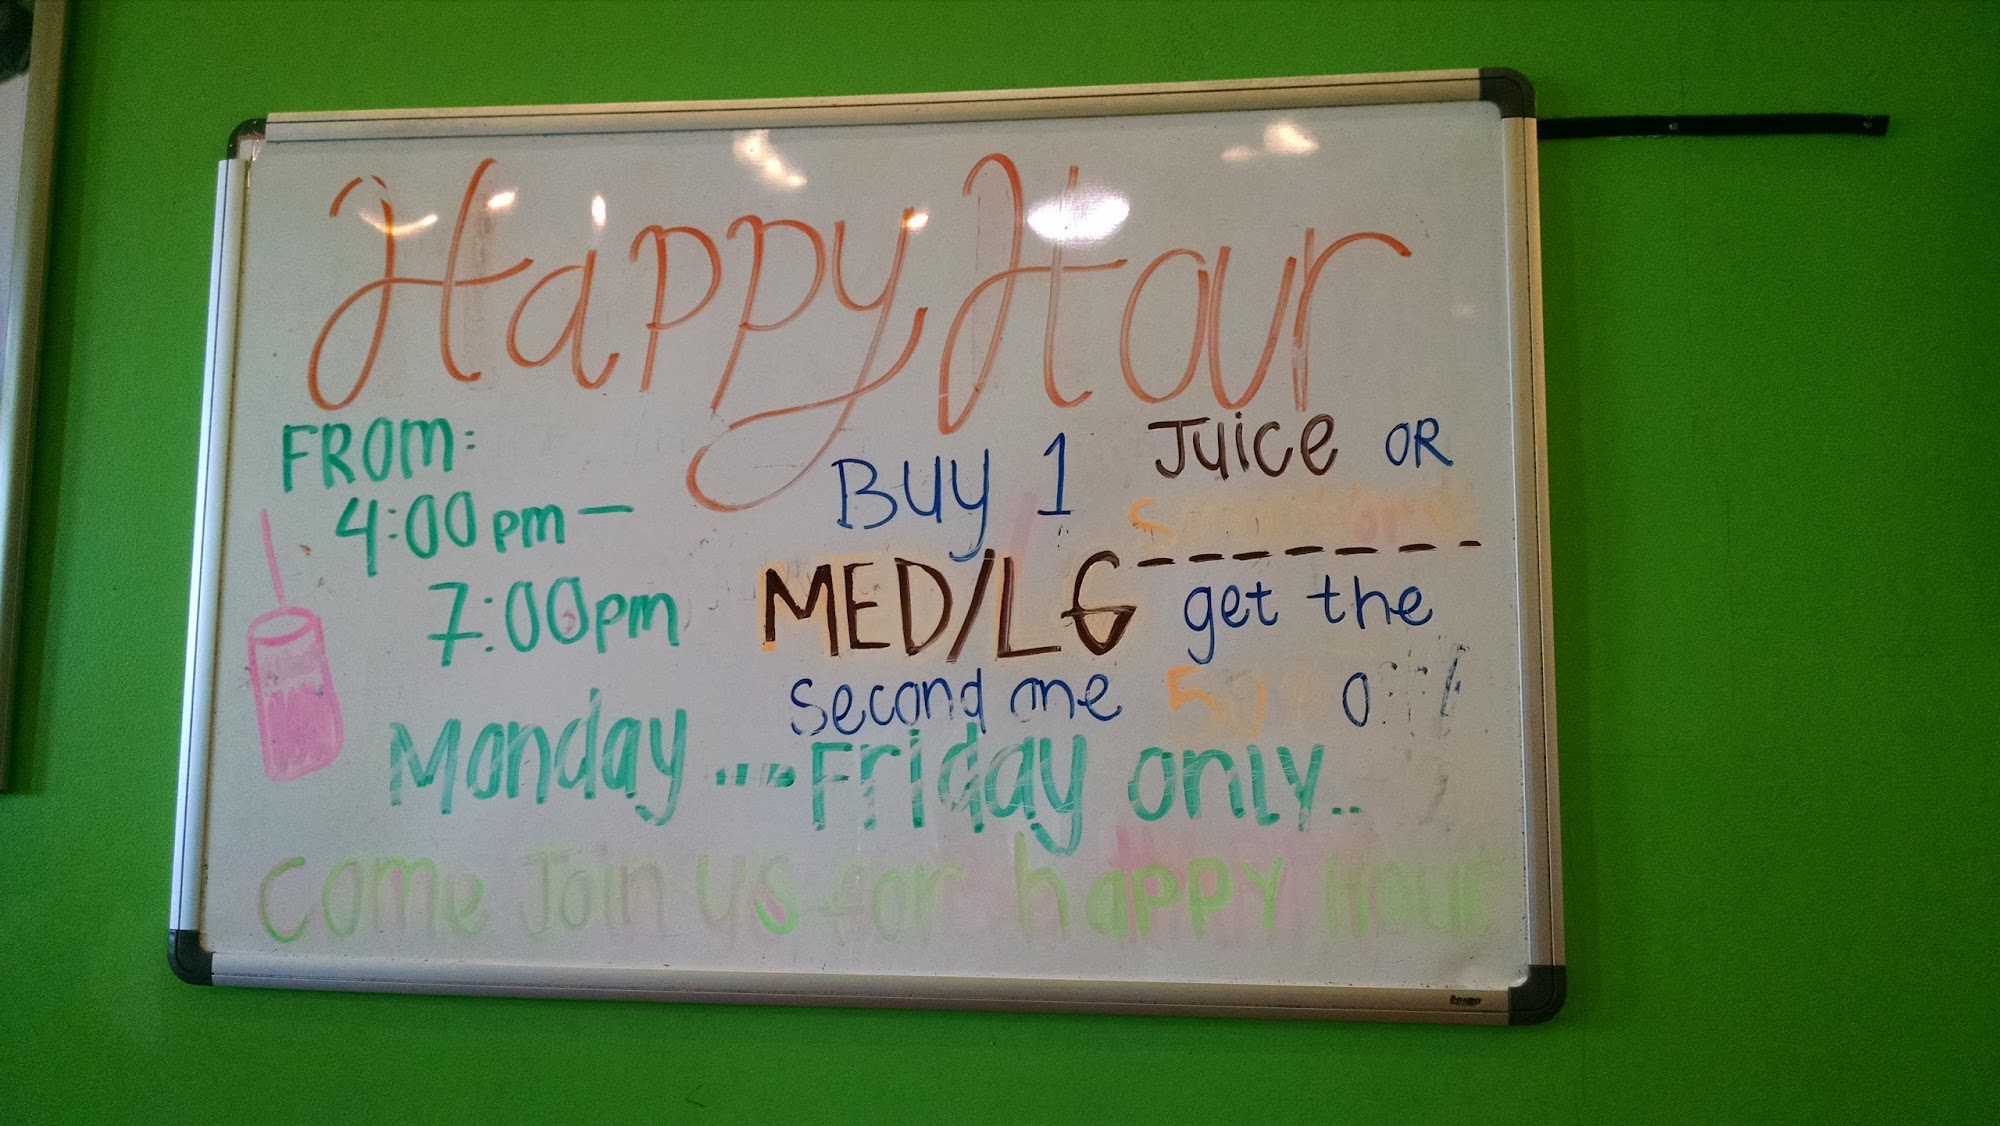 Happy Hour
FROM:
4:00pm —
7:00pm
Buy 1 Juice OR
MED/LG ------- get the
second one 50% off
Monday ---- Friday only..
Come Join us for happy Hour